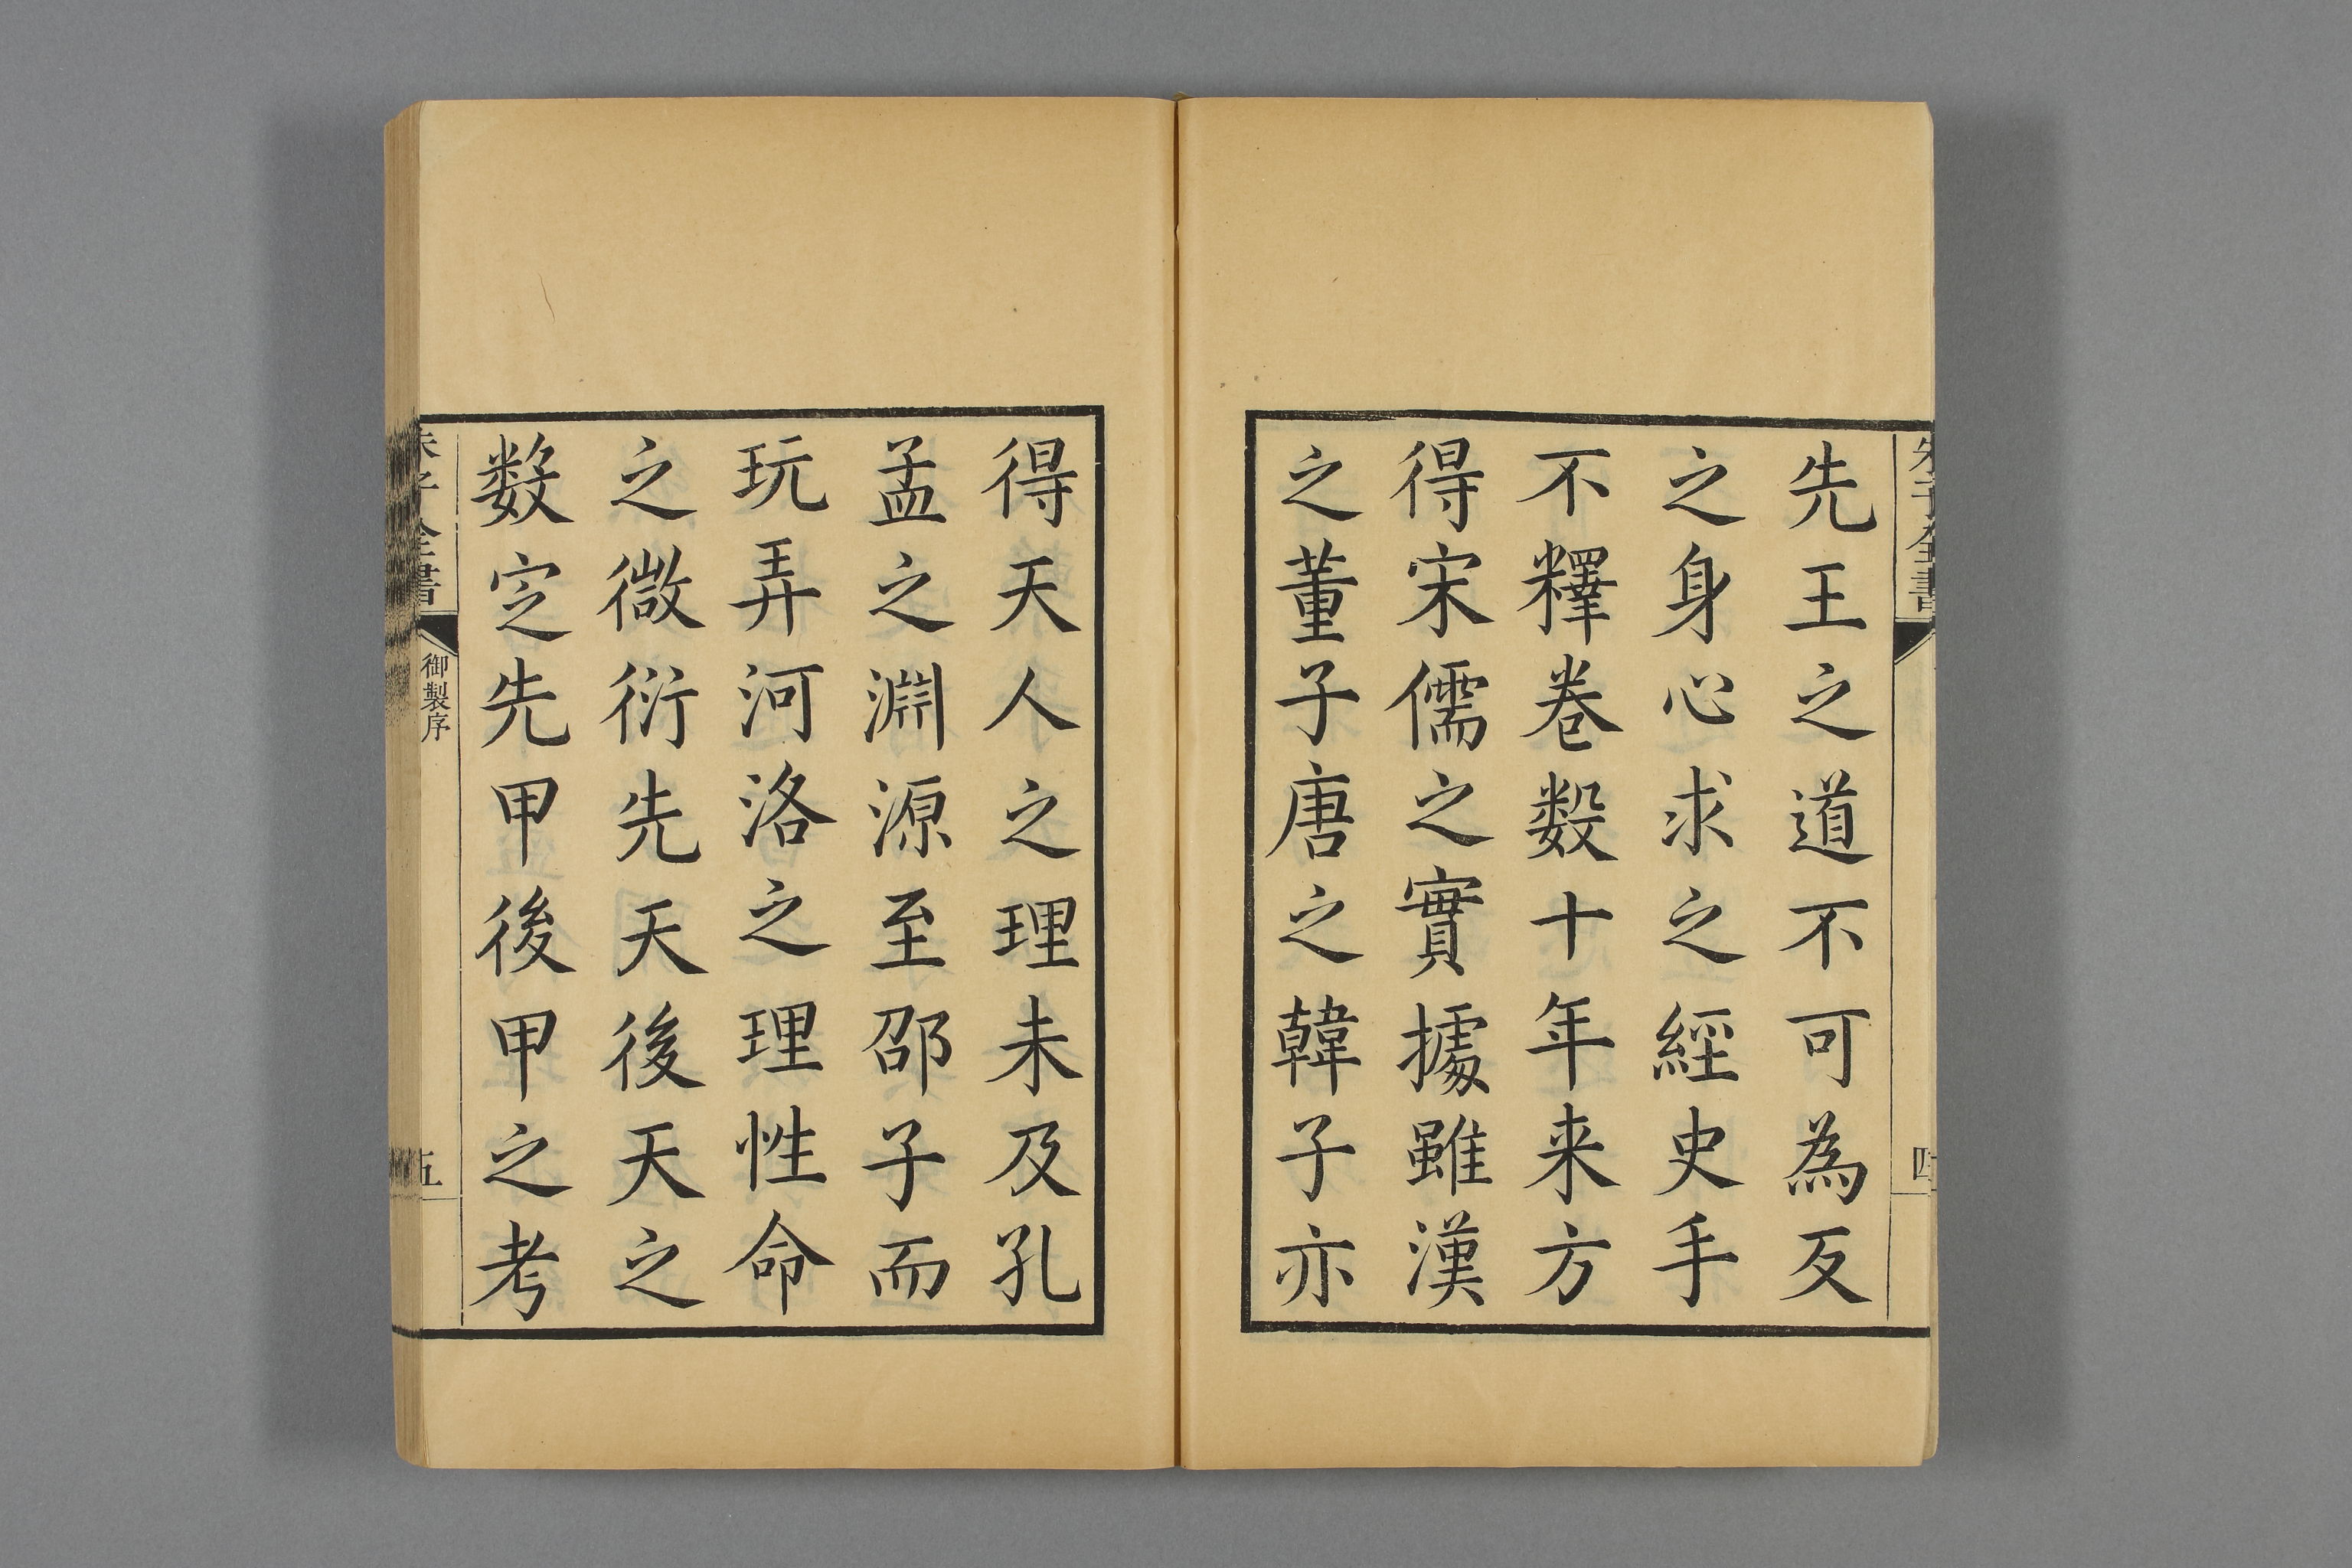 朱子全書
四
先王之道不可為反
之身心求之經史手
不釋卷數十年来方
得宋儒之實據雖漢
之董子唐之韓子亦
得天人之理未及孔
孟之淵源至邵子而
玩弄河洛之理性命
之微衍先天後天之
数定先甲後甲之考
朱子全書
御製序
五